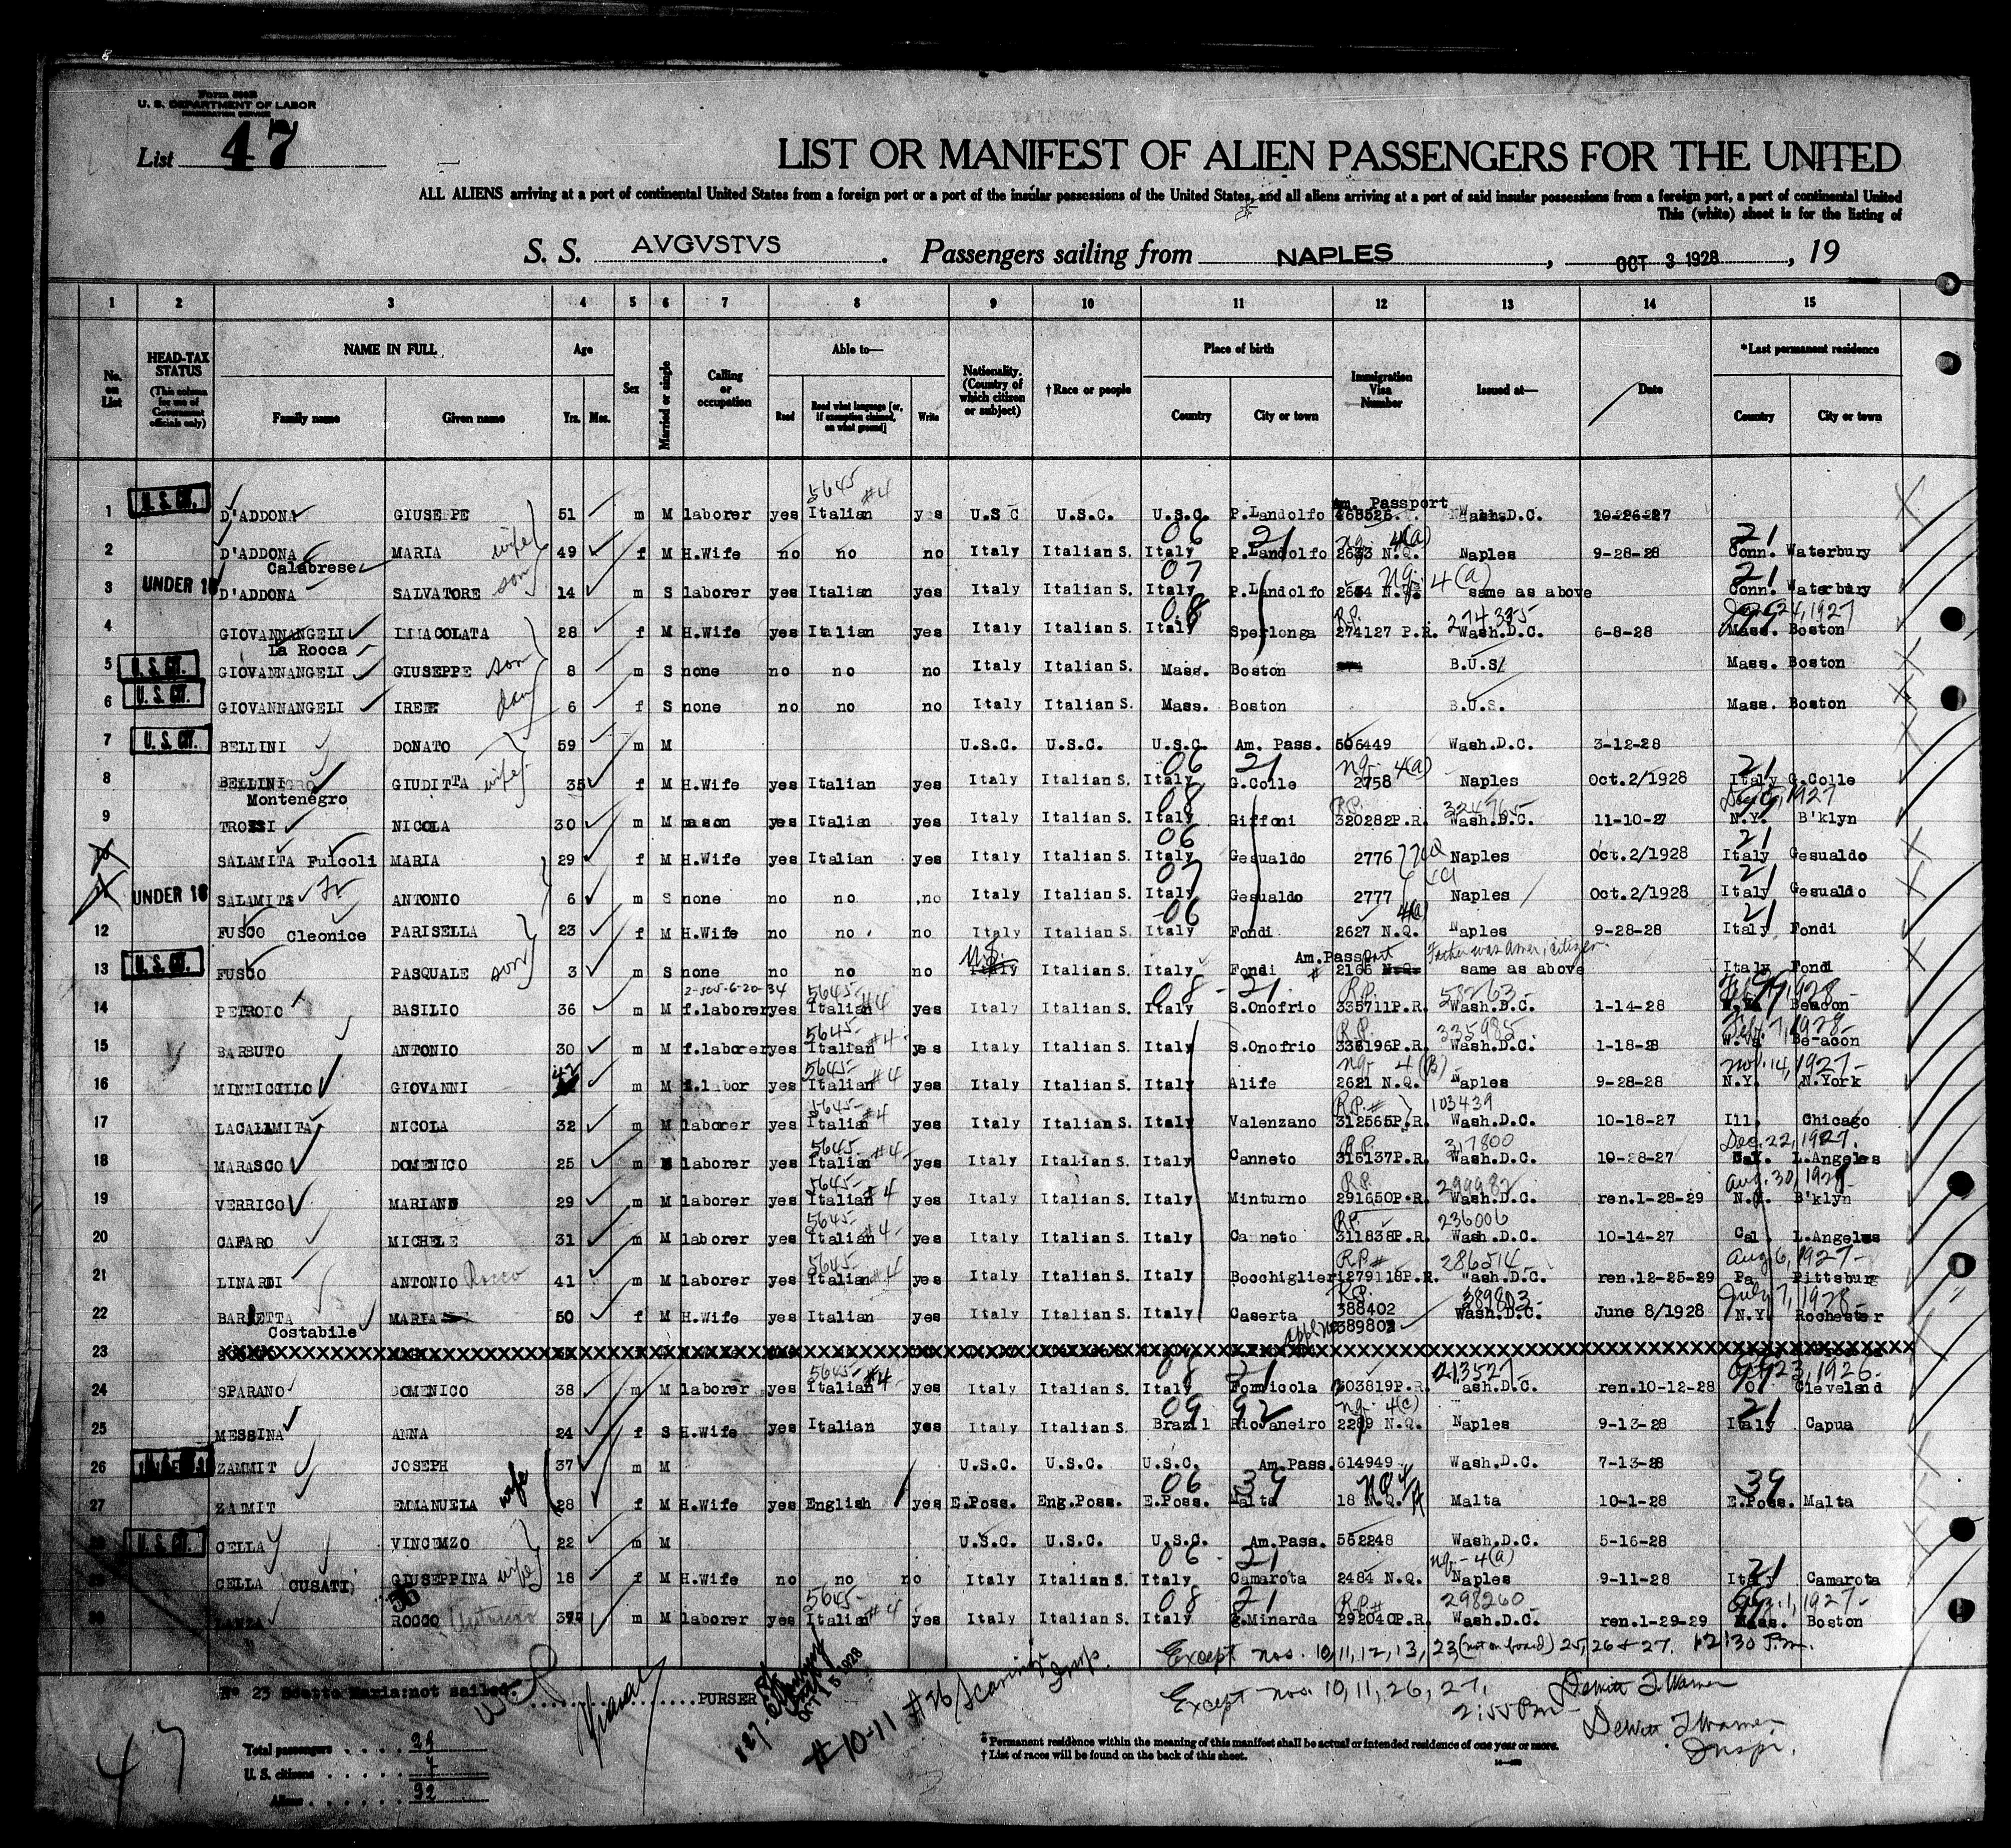 U. S. DEPARTMENT OF LABOR
List 47
LIST OR MANIFEST OF ALIEN PASSENGERS FOR THE UNITED
ALL ALIENS arriving at a port of continental United States from a foreign port or a port of the insular possessions of the United States, and all aliens arriving at a port of said insular possessions from a foreign port, a port of continental United
This (white) sheet is for the listing of
S. S. AVGVSTVS . Passengers sailing from NAPLES , OCT 3 1928 , 19
1 2 3 4 5 6 7 8 9 10 11 12 13 14 15
No. on List HEAD-TAX STATUS (This column for use of Government officials only) NAME IN FULL Family name Given name Age Yrs. Mos. Sex Married or single Calling or occupation Able to— Read Read what language [or, if exemption claimed, on what ground] Write Nationality. (Country of which citizen or subject) †Race or people Place of birth Country City or town Immigration Visa Number Issued at— Date *Last permanent residence Country City or town
5645 #4 Am. Passport
1 U.S. CIT. D'ADDONA GIUSEPPE 51 m M laborer yes Italian yes U.S.C U.S.C. U.S.C. P.Landolfo Wash.D.C. 10-26-27
06 21 nq. 4(a) 21
2 D'ADDONA Calabrese MARIA wife 49 f M H.Wife no no no Italy Italian S. Italy P.Landolfo 2633 N.Q. Naples 9-28-28 Conn. Waterbury
07 nq. 4(a) 21
3 UNDER 16 D'ADDONA SALVATORE son 14 m S laborer yes Italian yes Italy Italian S. Italy P.Landolfo 2634 N.Q. same as above Conn. Waterbury
08 R.P. 274395 24, 1927
4 GIOVANNANGELI La Rocca IMMACOLATA 28 f M H.Wife yes Italian yes Italy Italian S. Italy Sperlonga 274127 P.R. Wash.D.C. 6-8-28 Mass. Boston
5 U.S. CIT. GIOVANNANGELI GIUSEPPE son 8 m S none no no no Italy Italian S. Mass. Boston B.U.S. Mass. Boston
6 U.S. CIT. GIOVANNANGELI IRENE dau 6 f S none no no no Italy Italian S. Mass. Boston B.U.S. Mass. Boston
7 U.S. CIT. BELLINI DONATO 59 m M U.S.C. U.S.C. U.S.C. Am. Pass. 506449 Wash.D.C. 3-12-28
06 21 nq. 4(a) 21
8 BELLINI Montenegro GIUDITTA wife 35 f M H.Wife yes Italian yes Italy Italian S. Italy G.Colle 2758 Naples Oct.2/1928 Italy G.Colle
08 R.P. 324765 1927
9 TROISI NICOLA 30 m M mason yes Italian yes Italy Italian S. Italy Giffoni 320282P.R. Wash.D.C. 11-10-27 N.Y. B'klyn
06 21
10 SALAMITA Fulcoli MARIA 29 f M H.Wife yes Italian yes Italy Italian S. Italy Gesualdo 2776 Naples Oct.2/1928 Italy Gesualdo
07 21
11 UNDER 16 SALAMITA ANTONIO 6 m S none no no no Italy Italian S. Italy Gesualdo 2777 Naples Oct.2/1928 Italy Gesualdo
06 4(a) 21
12 FUSCO Cleonice PARISELLA 23 f M H.Wife no no no Italy Italian S. Italy Fondi 2627 N.Q. Naples 9-28-28 Italy Fondi
U.S. Am.Passport Father was Amer. Citizen.
13 U.S. CIT. FUSCO PASQUALE son 3 m S none no no no Italy Italian S. Italy Fondi # 2166 N.Q. same as above Italy Fondi
5645 #4 08 - 21 R.P. 1928
14 BASILIO 36 m M f.laborer yes Italian yes Italy Italian S. Italy S.Onofrio 335711P.R. Wash.D.C. 1-14-28 Beacon
5645 #4 R.P. 335985 Feb. 7, 1928
15 BARBUTO ANTONIO 30 m M f.laborer yes Italian yes Italy Italian S. Italy S.Onofrio 336196P.R. Wash.D.C. 1-18-28 W.Va Beacon
42 5645 #4 nq. 4(B) nov. 14, 1927
16 MINNICILLO GIOVANNI m M f.labor yes Italian yes Italy Italian S. Italy Alife 2621 N.Q. Naples 9-28-28 N.Y. N.York
5645 #4 R.P.# 103439
17 LACALAMITA NICOLA 32 m M laborer yes Italian yes Italy Italian S. Italy Valenzano 312565P.R. Wash.D.C. 10-18-27 Ill. Chicago
5645 #4 R.P. 317800 Dec. 22, 1927.
18 MARASCO DOMENICO 25 m M laborer yes Italian yes Italy Italian S. Italy Canneto 315137P.R. Wash.D.C. 10-28-27 L.Angeles
5645 #4 R.P. 299982 Aug. 30, 1928
19 VERRICO MARIANO 29 m M laborer yes Italian yes Italy Italian S. Italy Minturno 291650P.R. Wash.D.C. ren.1-28-29 N.Y. B'klyn
5645 #4 R.P. 236006
20 CAFARO MICHELE 31 m M laborer yes Italian yes Italy Italian S. Italy Canneto 311838P.R. Wash.D.C. 10-14-27 Cal. L.Angeles
5645 #4 R.P.# 286514 Aug 6, 1927
21 LINARDI ANTONIO Rocco 41 m M laborer yes Italian yes Italy Italian S. Italy Bocchiglieri 279118P.R. Wash.D.C. ren.12-25-29 Pa Pittsburg
R.P. 389803 July 7, 1928
22 BARLETTA Costabile MARIA 50 f M H.Wife yes Italian yes Italy Italian S. Italy Caserta 388402 389802 Wash.D.C. June 8/1928 N.Y. Rochester
23
5645 #4 08 21 213527 23, 1926
24 SPARANO DOMENICO 38 m M laborer yes Italian yes Italy Italian S. Italy Formicola 303819P.R. ash.D.C. ren.10-12-28 Cleveland
09 92 nq. 4(c) 21
25 MESSINA ANNA 24 f S H.Wife yes Italian yes Italy Italian S. Brazil RioJaneiro 2289 N.Q. Naples 9-13-28 Italy Capua
26 ZAMMIT JOSEPH 37 m M U.S.C. U.S.C. U.S.C. Am.Pass. 614949 Wash.D.C. 7-13-28
06 39 39
27 ZAMMIT EMMANUELA wife 28 f M H.Wife yes English yes E.Poss. Eng.Poss. E.Poss. Malta 18 N.Q. Malta 10-1-28 E.Poss. Malta
28 U.S. CIT. CELLA VINCENZO 22 m M U.S.C. U.S.C. U.S.C. Am.Pass. 552248 Wash.D.C. 5-16-28
06 - 21 nq - 4(a) 21
29 CELLA (CUSATI) GIUSEPPINA wife 18 f M H.Wife no no no Italy Italian S. Italy Camarota 2484 N.Q. Naples 9-11-28 Italy Camarota
5645 #4 08 21 R.P.# 298260 1, 1927
30 LANZA ROCCO Antonio 37 m M laborer yes Italian yes Italy Italian S. Italy G.Minarda 292040P.R. Wash.D.C. ren.1-29-29 Mass. Boston
Except nos. 10, 11, 12, 13, 23 (not on board) 25, 26 & 27. 12:30 P.m.
No 23 Maria:not sailed. PURSER
Except nos. 10, 11, 26, 27. Dewitt T. Warner
2:55 Pm
OCT 15 1928
#10-11
#26
Dewitt T. Warner
Inspr.
47
Total passengers . . . . 29
U. S. citizens . . . . . 7
Aliens . . . . . . 32
* Permanent residence within the meaning of this manifest shall be actual or intended residence of one year or more.
† List of races will be found on the back of this sheet.